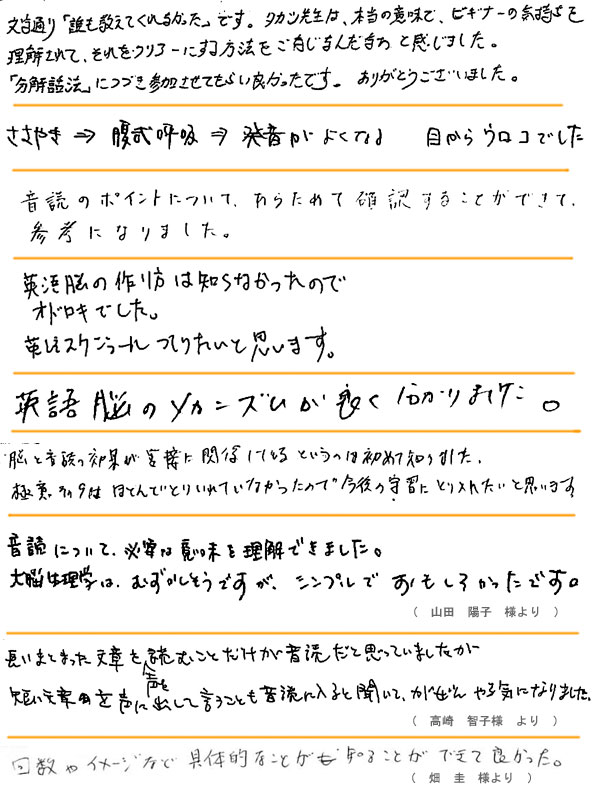 文字通り「誰も教えてくれなかった」です。タカツ先生は、本当の意味で、ビギナーの気持ちを
理解されて、それをクリアーにする方法をご存じなんだなあと感じました。
「分解話法」につづき参加させてもらい良かったです。ありがとうございました。
ささやき ⇒ 腹式呼吸 ⇒ 発音がよくなる 目からウロコでした
音読のポイントについて、あらためて確認することができて、
参考になりました。
英語脳の作り方は知らなかったので
オドロキでした。
英語スケジュール つくりたいと思います。
英語脳のメカニズムが良く分かりました。
脳と音読の効果が密接に関係しているというのは初めて知りました。
極意、その9は ほとんどとりいれていなかったので今後の学習にとり入れたいと思います
音読について、必要な意味を理解できました。
大脳生理学は、むずかしそうですが、シンプルで おもしろかったです。
( 山田 陽子 様より )
長いまとまった文章を声を読むことだけが音読だと思っていましたが
短い文章を声に出して言うことも音読に入ると聞いて、がぜん やる気になりました。
( 高崎 智子様 より )
回数やイメージなど具体的なことがも知ることができて良かった。
( 畑 圭 様より )